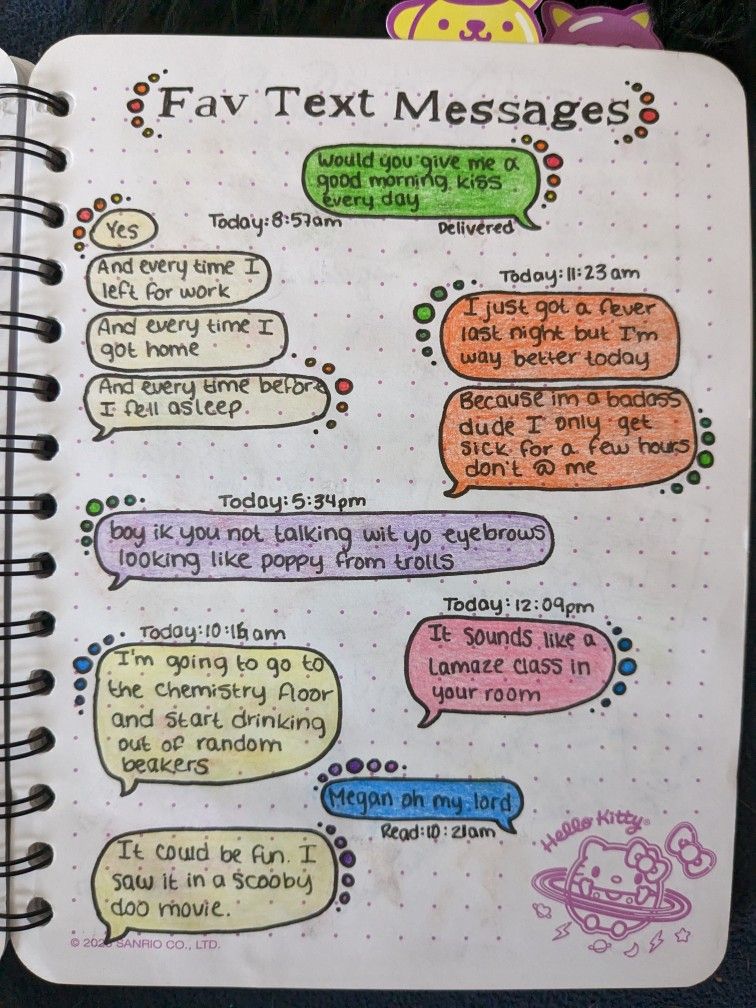 Fav Text Messages
Would you give me a
good morning kiss
every day
Delivered
Today: 8:57am
Yes
And every time I
left for work
And every time I
got home
And every time before
I fell asleep
Today: 11:23 am
I just got a fever
last night but I'm
way better today
Because im a badass
dude I only get
sick for a few hours
don't @ me
Today: 5:34pm
boy ik you not talking wit yo eyebrows
looking like poppy from trolls
Today: 12:09pm
It sounds like a
Lamaze class in
your room
Today: 10:15 am
I'm going to go to
the chemistry floor
and start drinking
out of random
beakers
Megan oh my lord
Read: 10:21am
It could be fun. I
saw it in a scooby
doo movie.
Hello Kitty®
SANRIO CO., LTD.